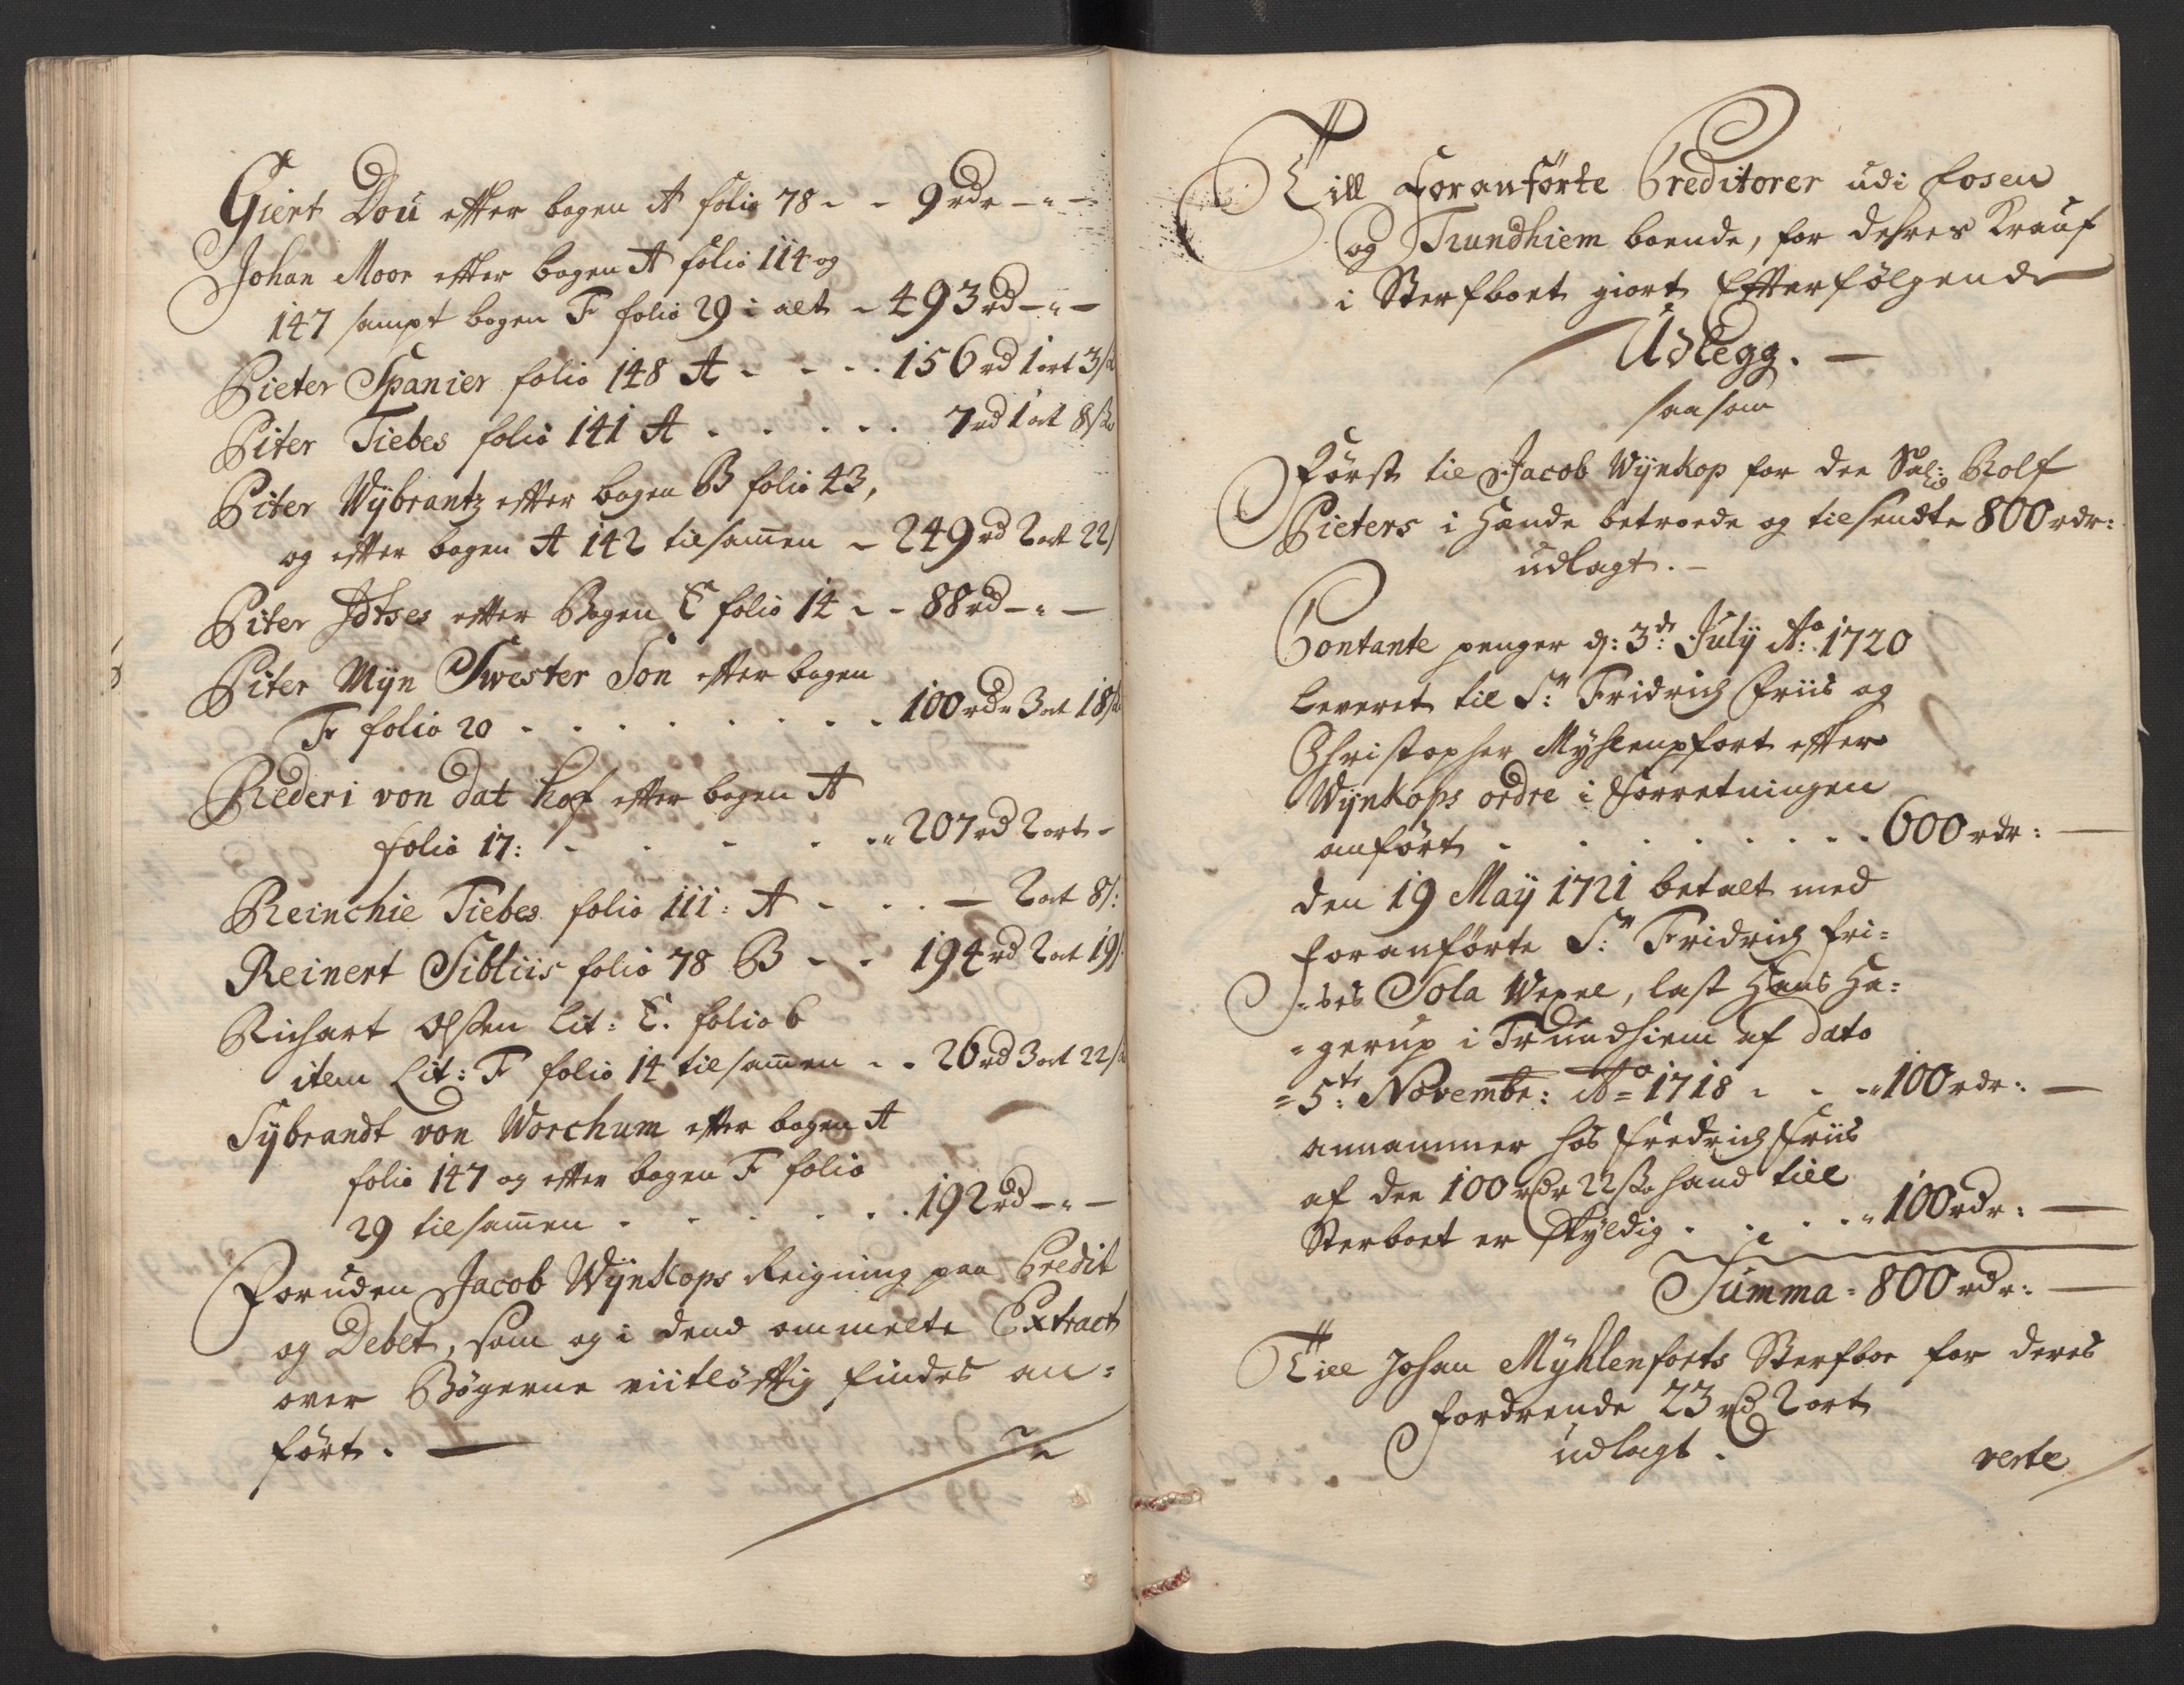 Giert Doú efter bogen A folio 78 - - 9 rdr - " -
Johan Moor efter bogen A folio 114 og
147 sampt bogen F folio 29 i alt - 493 rd - " -
Pieter Spanier folio 148 A - - - . 156 rd 1 ort 3 s
Piter Tiebes folio 141 A . . . . . 7 rd 1 ort 8 s
Piter Wÿbrantz efter bogen B folio 43,
og efter bogen A 142 tilsam̄en - 249 rd 2 ort 22 s
Piter efter Bogen E folio 14 - - 88 rd - " -
Piter Mÿn Swester Son efter bogen
F folio 20 - . . . . . . . . 100 rdr 3 ort 18 s
Rederi von dat hof efter bogen A
folio 17: - . - . . " 207 rd 2 ort -
Reinchie Tiebes folio 111: A - . . — 2 ort 8 s:
Reinert Sibliis folio 78 B - - 194 rd 2 ort 19 s
Richart Olssen Lit: E. folio 6
item Lit: F folio 14 tilsam̄en - . 26 rd 3 ort 22 s
Sÿbrandt von Worchum efter bogen A
folio 147 og efter bogen F folio
29 tilsam̄en . . . . . . 192 rd - " -
Foruden Jacob Wÿnkops Reigning paa Credit
og Debet, som og i dend ommelte Extract
over Bøgerne viitløftig findes an-
ført. —
Till Foranførte Creditorer udi Fosen
og Trundhiem boende, for dehres Krauf
i Sterfboet giort Efterfølgende
Udlegg. —
saasom
Først til Jacob Wÿnkop for dee Sal: Rolf
Pieters i Hænde betroede og tilsendte 800 rdr:
udlagt. -
Contante penger d: 3de Julÿ Ao: 1720
leveret til Sr: Fridrich Friis og
Christopher Mÿhlenpfort efter
Wÿnkops ordre i forretningen
anført . . . . . . . . 600 rdr: —
den 19 Maÿ 1721 betalt med
foranførte Sr: Fridrich Fri-
-ses Sola Wexel, last Hans Ha-
-gerup i Trundhiem af dato
= 5te: Novembr: Ao = 1718 - - - " 100 rdr: —
annammer hos Fredrich Friis
af dee 100 rdr 22 s hand till
Sterboet er skyldig . . . . " 100 rdr: —
Summa - 800 rdr: —
Till Johan Mÿhlenforts Sterfboe for deres
fordrende 23 rd 2 ort
udlagt.
verte